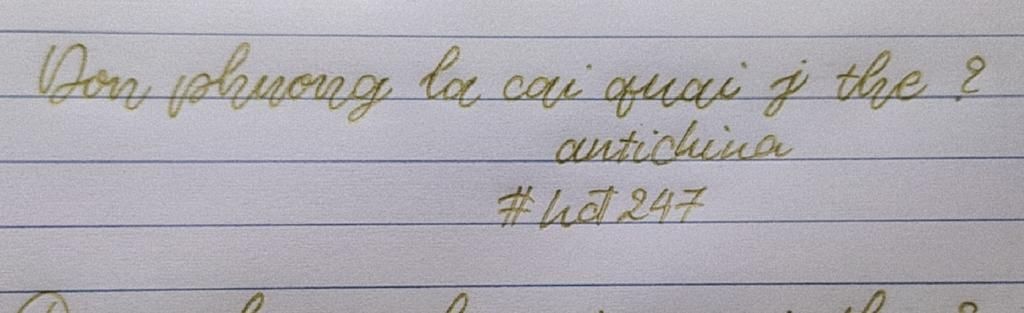 Don phuong la cai quai j the ?
antichina
#hot247